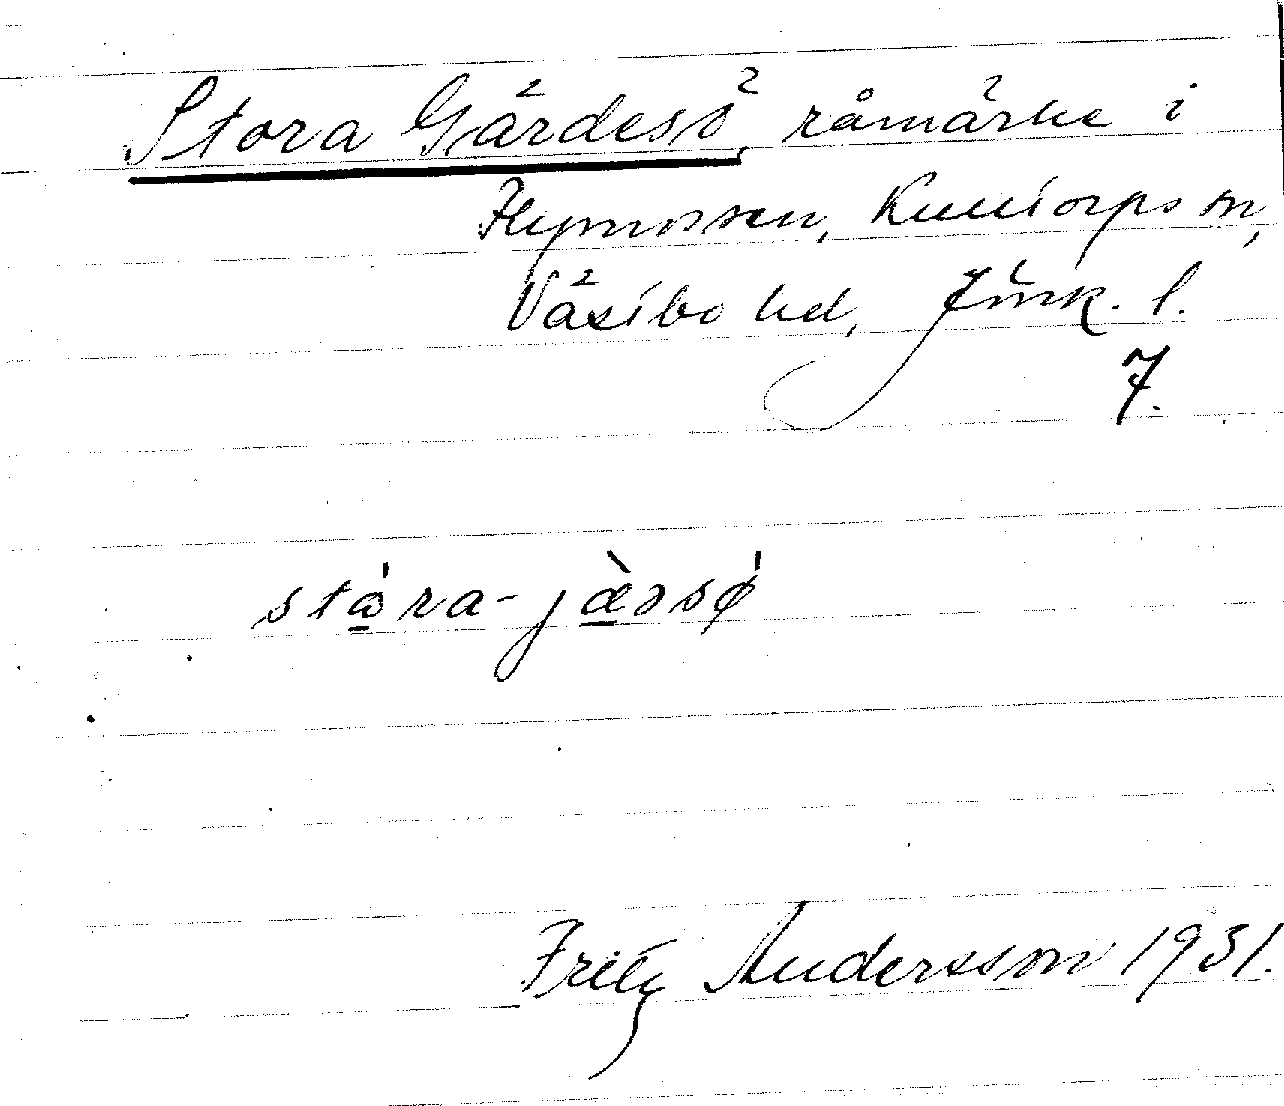 Stora Gärdesö, råmärke i
Flymossen, Kulltorps sn,
Västbo hd, Jönk. l.
7.
stòra-jæ̀rsø
Fritz Andersson 1931.